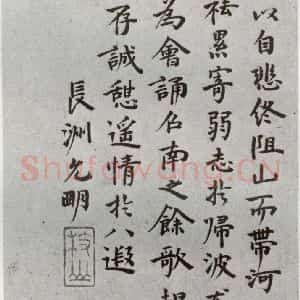 以自悲終阻山而帶河
祛累寄弱志於歸波尤
為會誦召南之餘歌坦
存誠憩遥情於八遐
長洲允明
枝山
Shufawang.CN